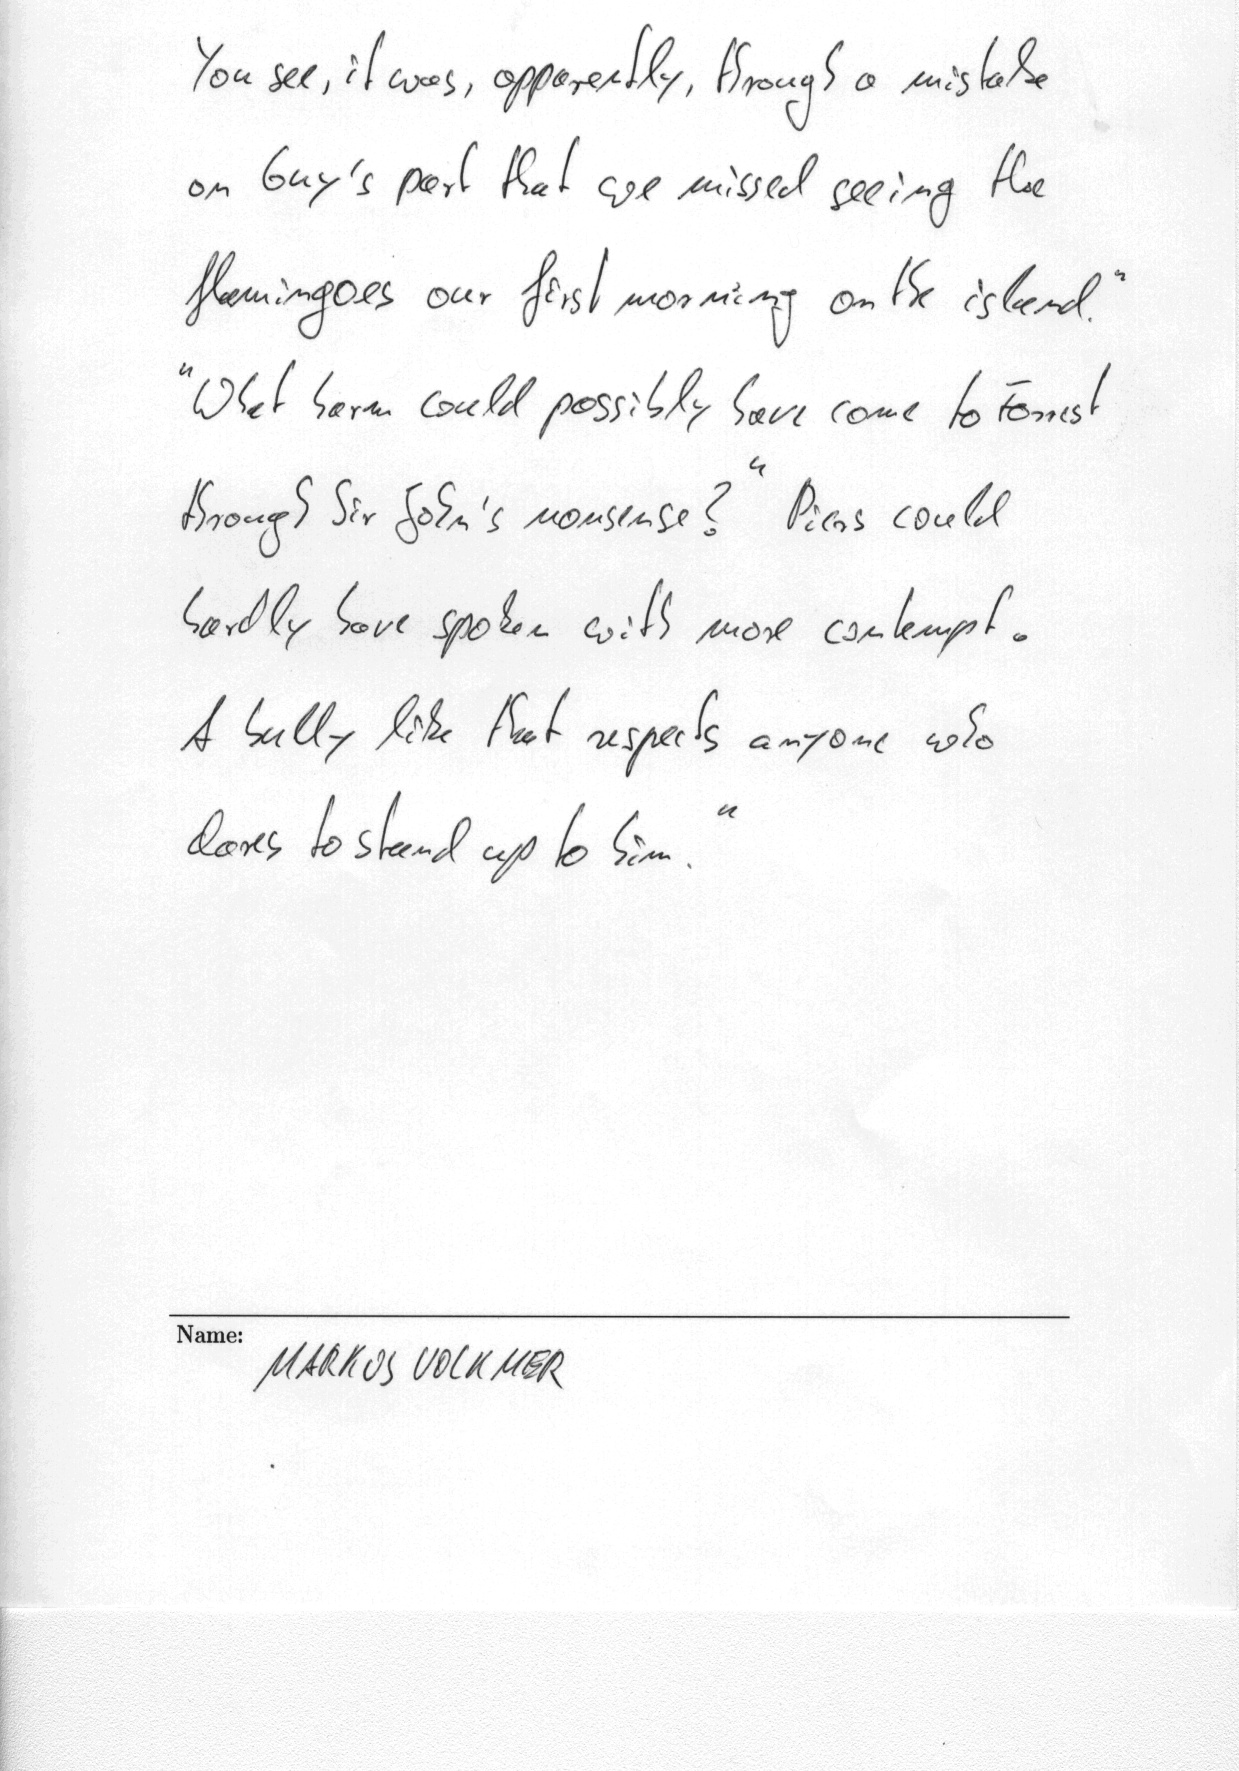 You see, it was, apparently, through a mistake
on Guy's part that we missed seeing the
flamingoes our first morning on the island."
"What harm could possibly have come to Forrest
through Sir John's nonsense?" Piers could
hardly have spoken with more contempt.
A bully like that respects anyone who
dares to stand up to him."
Name:
MARKUS VOLKMER